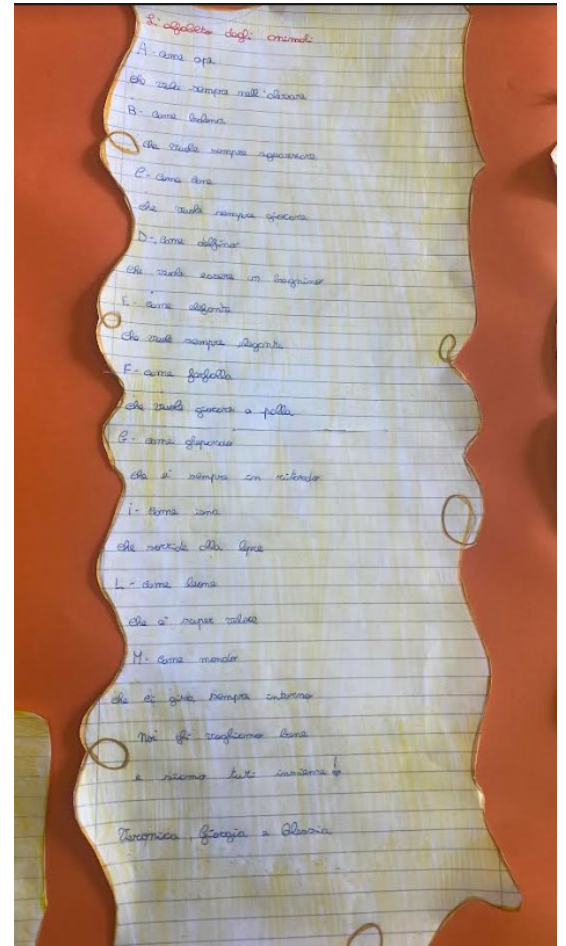 L'alfabeto degli animali
A - come ape
che vola sempre nell'
B - come balena
che vuole sempre
C - come cane
che vuole sempre giocare
D - come delfino
che vuole essere un bagnino
E - come elefante
che vuole sempre elegante
F - come farfalla
che vuole giocare a palla
G - come ghepardo
che è sempre in ritardo
i - come iena
che sorride alla lepre
L - come leone
che è super veloce
M - come mondo
che ci gira sempre intorno
Noi gli vogliamo bene
e siamo tuti insieme!
Veronica, Giorgia e Alessia